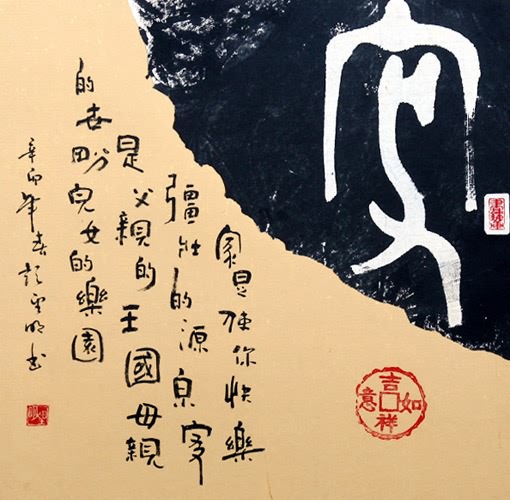 家
家是使你快樂
彊壯的源泉家
是父親的王國母親
的世畍兒女的樂園
辛卯年春彭明书
吉祥如意